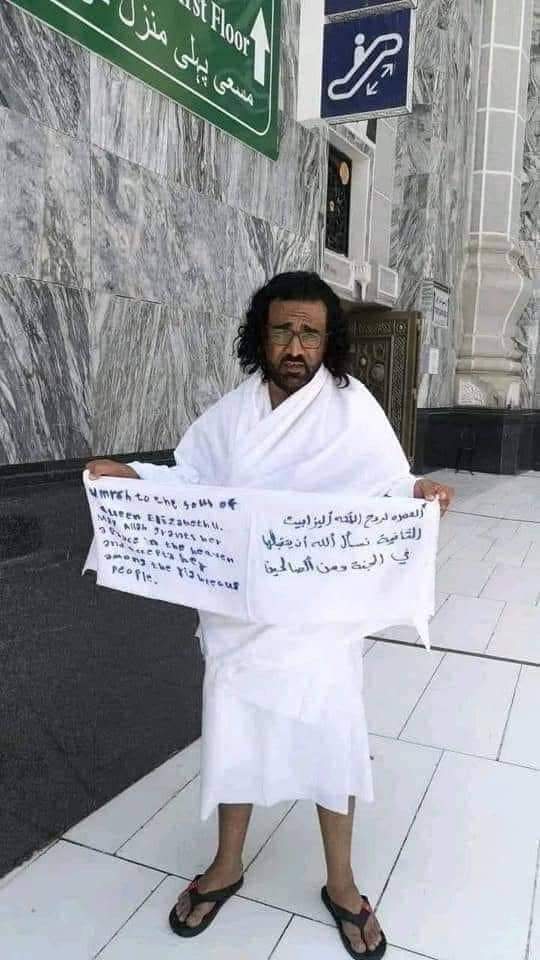 rst Floor
مسعى پہلی منزل
umrah to the soul of
queen Elizabeth II.
May Allah grants her
a place in the heaven
and accepts her
among the righteous
people.
العمره لروح الملكه أليزابيت
الثانية نسأل الله أن يتقبلها
في الجنة ومن الصالحين